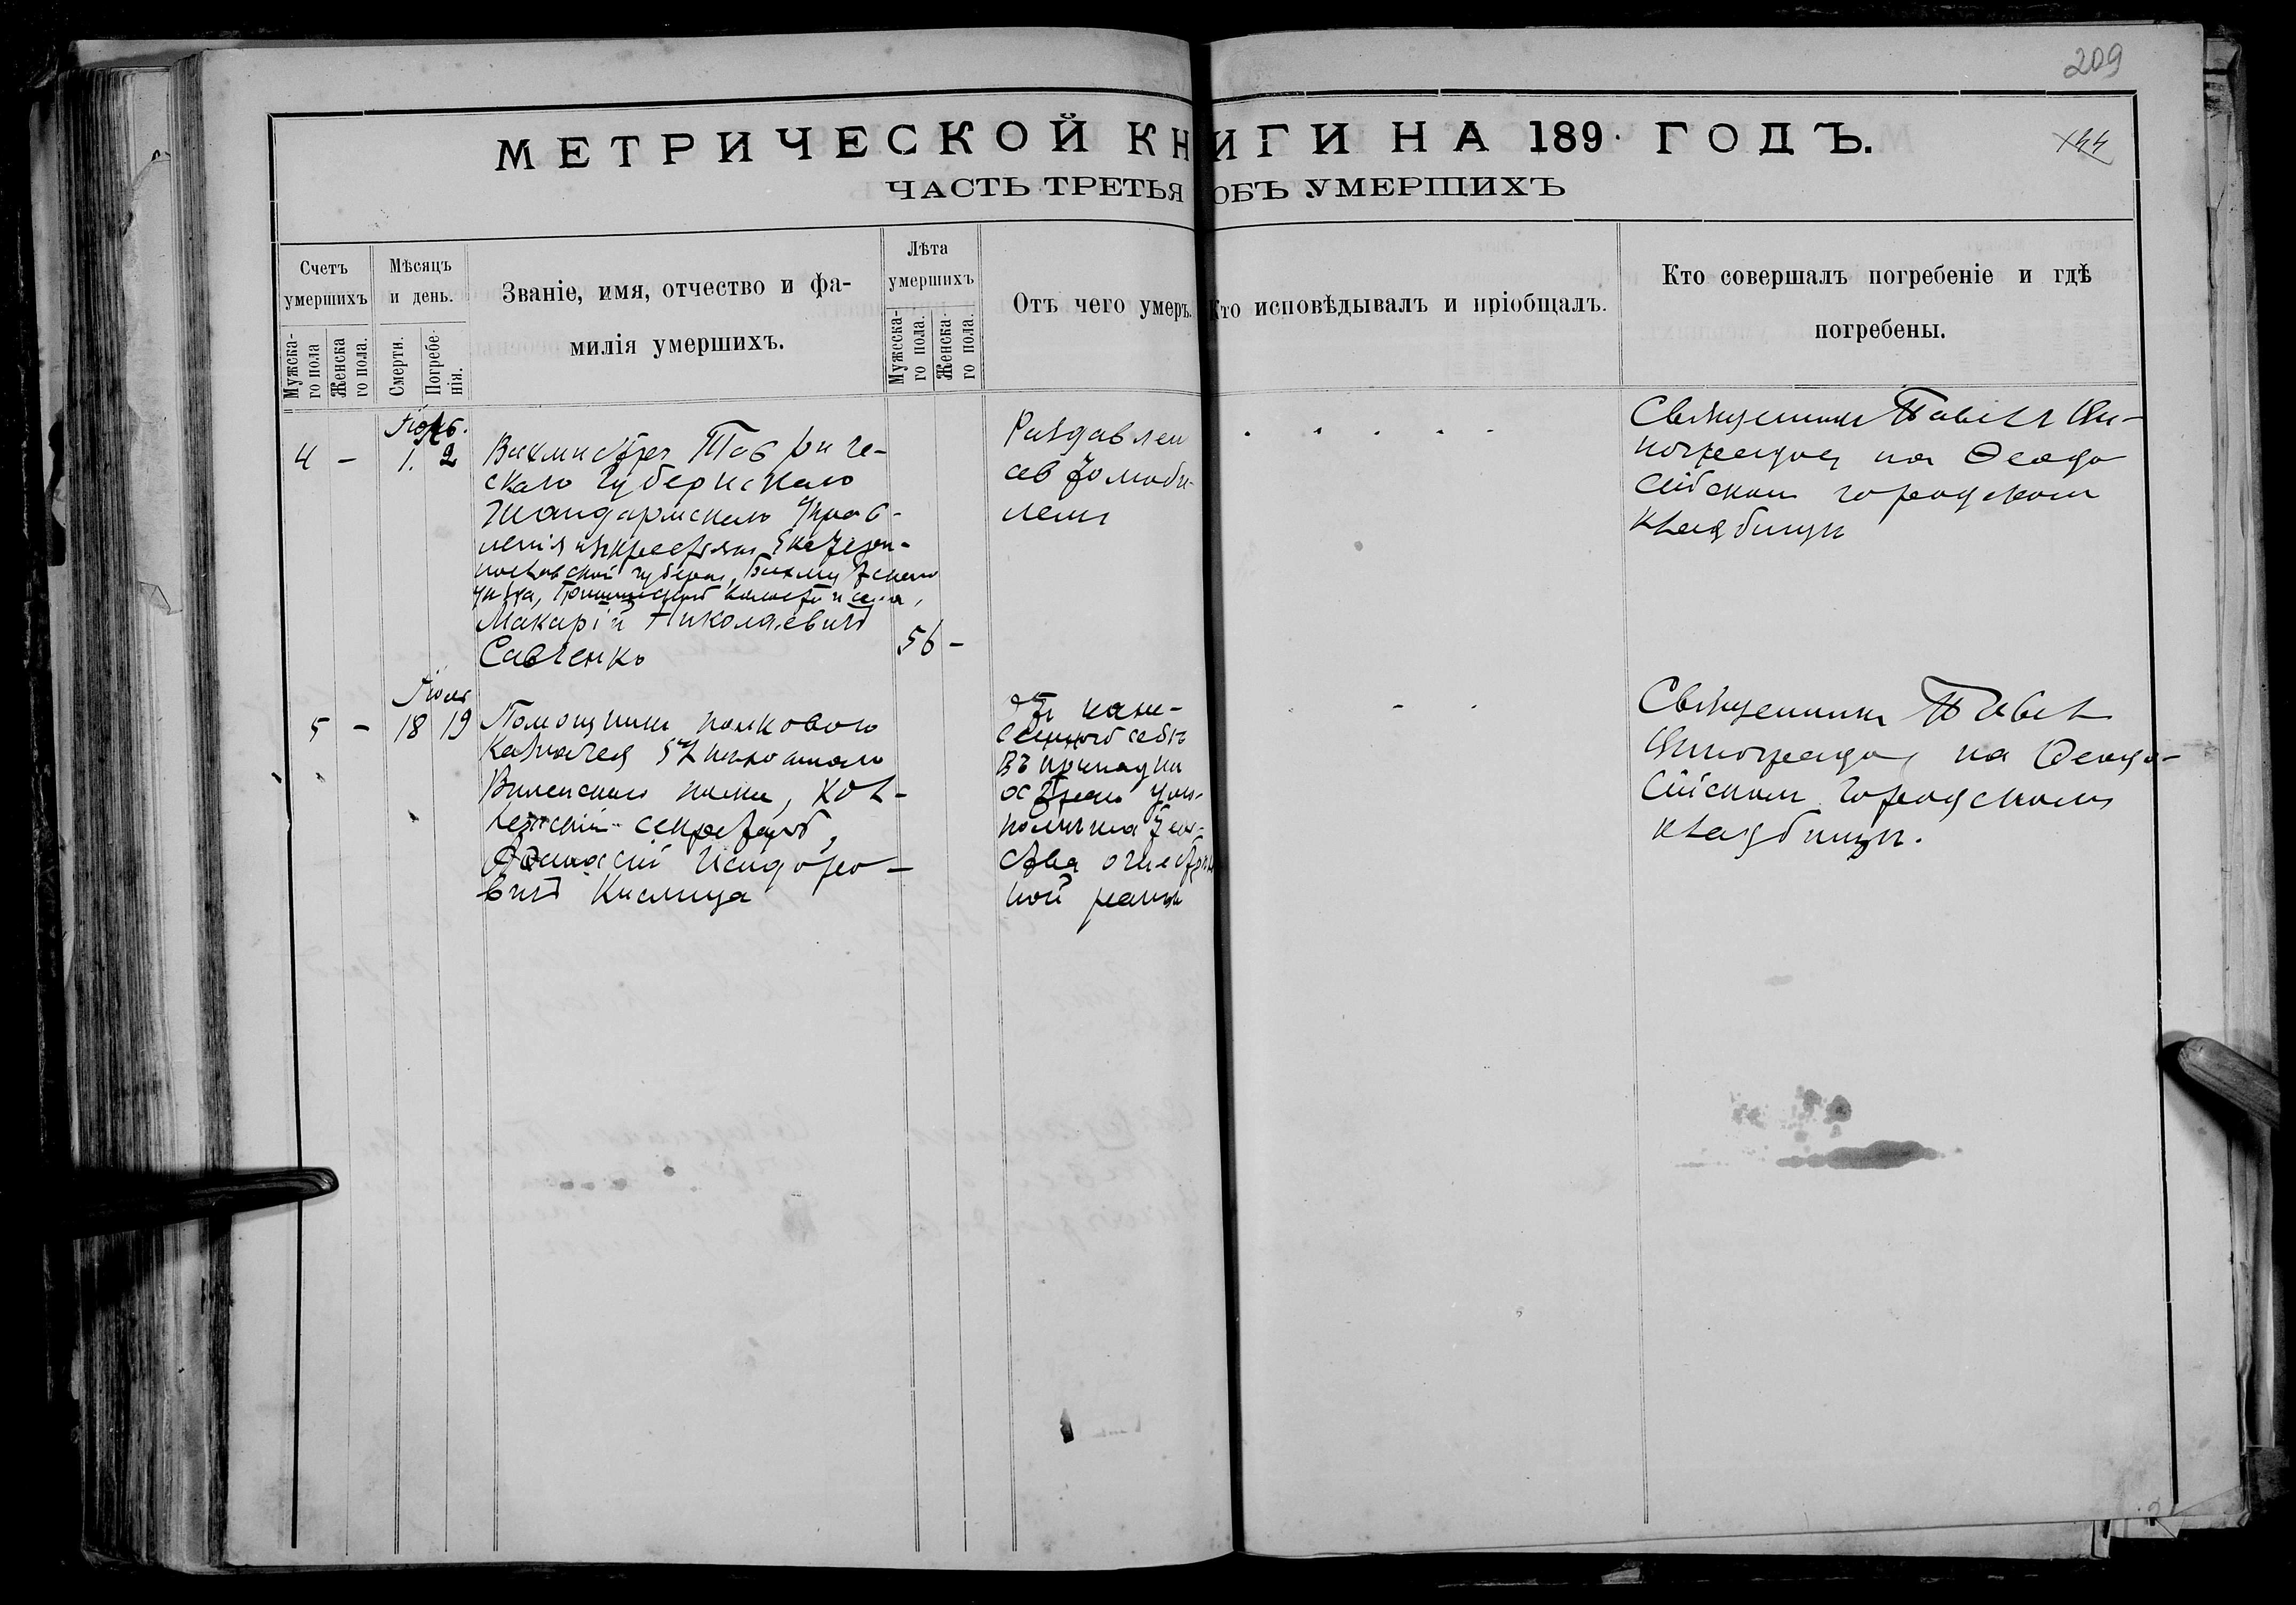 209
МЕТРИЧЕСКОЙ КНИГИ НА 189 ГОДЪ.
144
ЧАСТЬ ТРЕТЬЯ ОБЪ УМЕРШИХЪ
Счетъ умершихъ
Мужска-го пола
Женска го пола.
Мѣсяцъ и день.
Смерти.
Погребе-нія.
Званіе, имя, отчество и фа-
милія умершихъ.
Лѣта умершихъ
Мужеска-го пола.
Женска-го пола.
Отъ чего умеръ.
Кто исповѣдывалъ и пріобщалъ.
Кто совершалъ погребеніе и гдѣ
погребены.
4 – 1. 2
Вахмистръ Тавриче-
скаго Губернскаго
Жандармскаго Управ-
ленія изъ крестьянъ Екатери-
нославской губерніи, Бахмутскаго
уѣзда, волости и села,
Макарій Николаевичъ
Савченко
56 –
Раздавлен
автомоби-
лемъ
Священникъ Павелъ Ви-
ноградовъ на Ѳеодо
сійскомъ городскомъ
кладбищѣ
Іюль
5 – 18 19
Помощникъ полковаго
Казначея 52 пѣхотнаго
Виленскаго полка, Кол-
лежскій секретарь,
Аѳанасій Исидоро-
вичъ Кислица
Отъ нане-
сенной себѣ
въ припадкѣ
остраго умо-
помѣшатель-
ства огнестрѣль
ной раны
Священникъ Павелъ
Виноградовъ на Ѳеодо-
сійскомъ городскомъ
кладбищѣ.